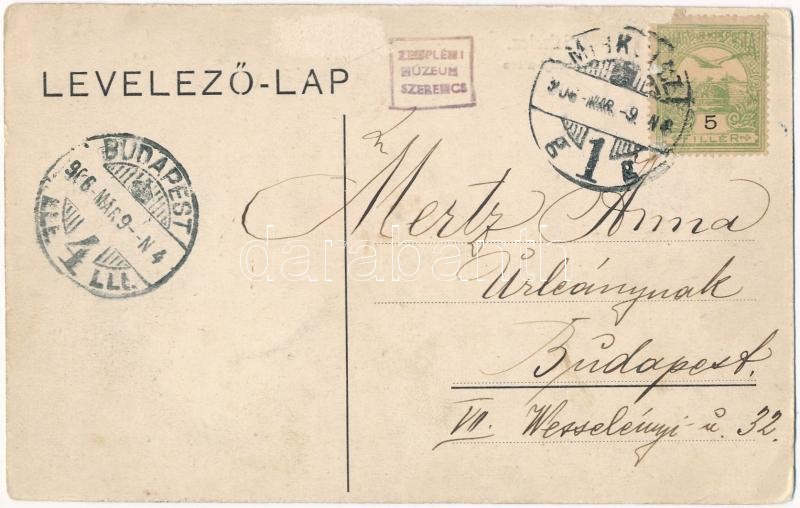 LEVELEZŐ-LAP
ZEMPLÉNI
MÚZEUM
SZERENCS
906 MAR. -9. N 4
1
5
FILLÉR
BUDAPEST
906 MAR 9 - N 4
4
Mertz Anna
Úrleánynak
Budapest.
VII. Wesselényi-u. 32.
darabanth